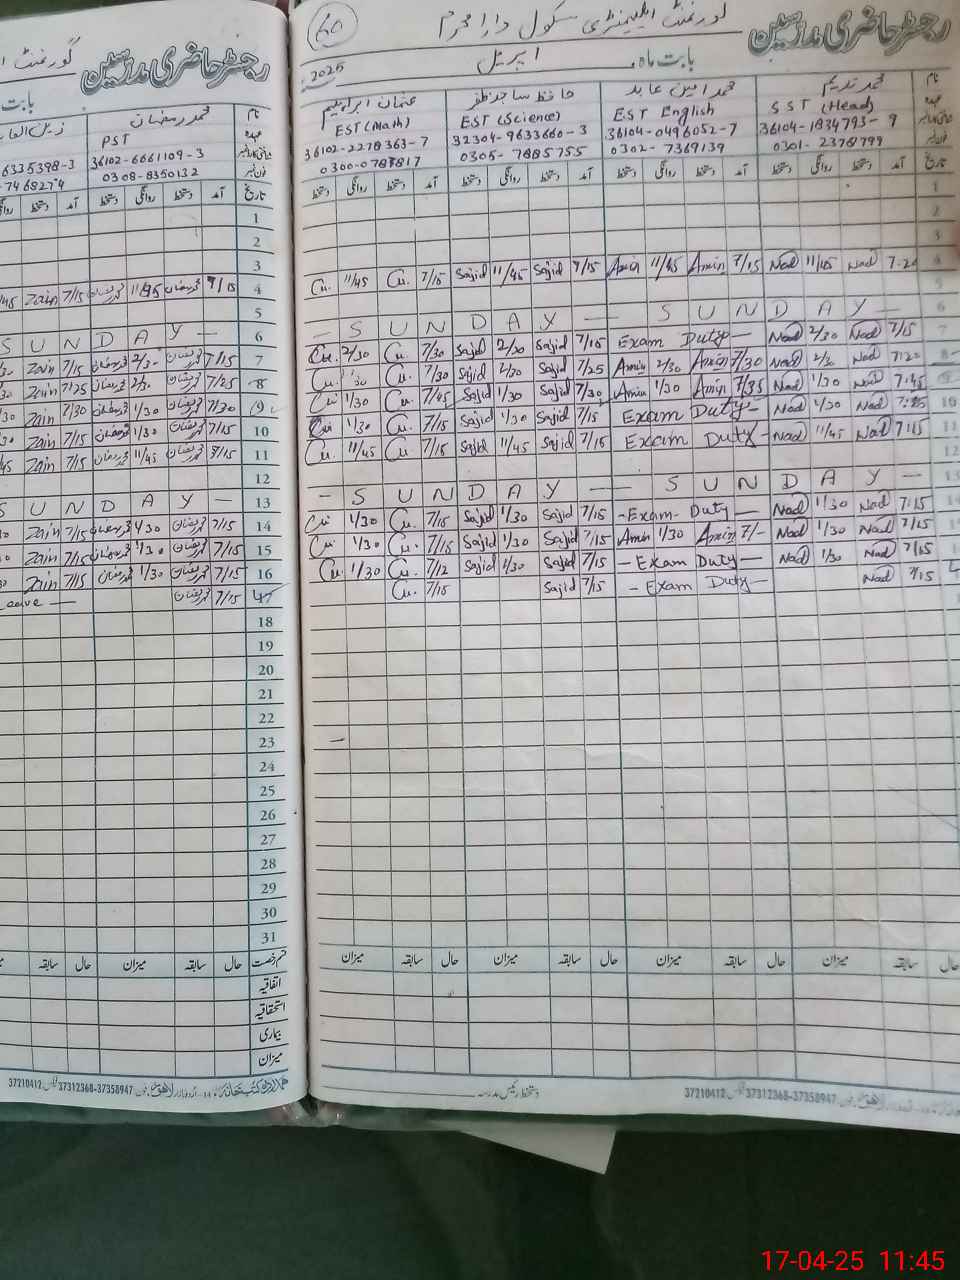 رجسٹر حاضری مدرسین
گورنمنٹ ایلیمنٹری سکول دارا محرم
60
بابت ماہ اپریل 2025
نام محمد ندیم محمد امین عابد حافظ ساجد ظفر عثمان ابراہیم
عہدہ SST (Head) EST English EST (Science) EST (Math)
36104-1834793-9 36104-0496052-7 32304-9633660-3 36102-2278363-7
فون نمبر 0301-2378799 0302-7369139 0305-7885755 0300-0788817
تاریخ آمد دستخط روانگی دستخط آمد دستخط روانگی دستخط آمد دستخط روانگی دستخط آمد دستخط روانگی دستخط
1
2
3
Cu. 11/45 Cu. 7/15 Sajid 11/45 Sajid 7/15 Amin 11/45 Amin 7/15 Nad 11/45 Nad
5
— S U N D A Y — — S U N D A Y —
Cu. 2/30 Cu. 7/30 Sajid 2/30 Sajid 7/15 Exam Duty — Nad 2/30 Nad 7/15 7
Cu. Cu. 7/30 Sajid 2/30 Sajid 7/25 Amin 2/30 Amin 7/30 Nad Nad 8
Cu 1/30 Cu. 7/45 Sajid 1/30 Sajid 7/30 Amin 1/30 Amin 7/35 Nad 1/30 Nad
Cu 1/30 Cu. 7/15 Sajid 1/30 Sajid 7/15 Exam Duty — Nad 1/30 Nad 10
Cu. 11/45 Cu. 7/15 Sajid 11/45 Sajid 7/15 Exam Duty — Nad 11/45 Nad 7:15 11
12
— S U N D A Y — — S U N D A Y —
Cu 1/30 Cu. 7/15 Sajid 1/30 Sajid 7/15 — Exam Duty — Nad 1/30 Nad 7:15 14
Cu 1/30 Cu. 7/15 Sajid 1/30 Sajid 7/15 Amin 1/30 Amin 7/- Nad 1/30 Nad 7/15
Cu. 1/30 Cu. 7/12 Sajid 1/30 Sajid 7/15 — Exam Duty — Nad 1/30 Nad 7/15
Cu. 7/15 Sajid 7/15 — Exam Duty — Nad 7/15
حال سابقہ میزان حال سابقہ میزان حال سابقہ میزان حال سابقہ میزان
دستخط رئیس مدرسہ
فون 37312368-37358947 فیکس 37210412
رجسٹر حاضری مدرسین
گورنمنٹ
بابت
نام محمد رمضان
عہدہ PST
36102-6661109-3 6335398-3
فون نمبر 0308-8350132 7468274
تاریخ آمد دستخط روانگی دستخط آمد دستخط
1
2
3
Zain 7/15 محمد رمضان 11/45 محمد رمضان 7/15 4
5
S U N D A Y — 6
Zain 7/15 محمد رمضان 2/30 محمد رمضان 7/15 7
Zain 7/25 محمد رمضان محمد رمضان 7/25 8
Zain 7/30 محمد رمضان 1/30 محمد رمضان 7/30 9
Zain 7/15 محمد رمضان 1/30 محمد رمضان 7/15 10
Zain 7/15 محمد رمضان 11/45 محمد رمضان 7/15 11
12
S U N D A Y — 13
Zain 7/15 محمد رمضان 1/30 محمد رمضان 7/15 14
Zain 7/15 محمد رمضان 1/30 محمد رمضان 7/15 15
Zain 7/15 محمد رمضان 1/30 محمد رمضان 7/15 16
Leave — محمد رمضان 7/15 17
18
19
20
21
22
23
24
25
26
27
28
29
30
31
قسم رخصت حال سابقہ میزان حال سابقہ
اتفاقیہ
استحقاقیہ
بیماری
میزان
فون 37312368-37358947 فیکس 37210412
17-04-25 11:45